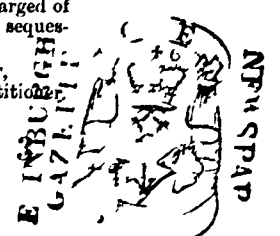 arged of
seques-
titioner.
E INBURGH
GAZETTE
NEWSPAP